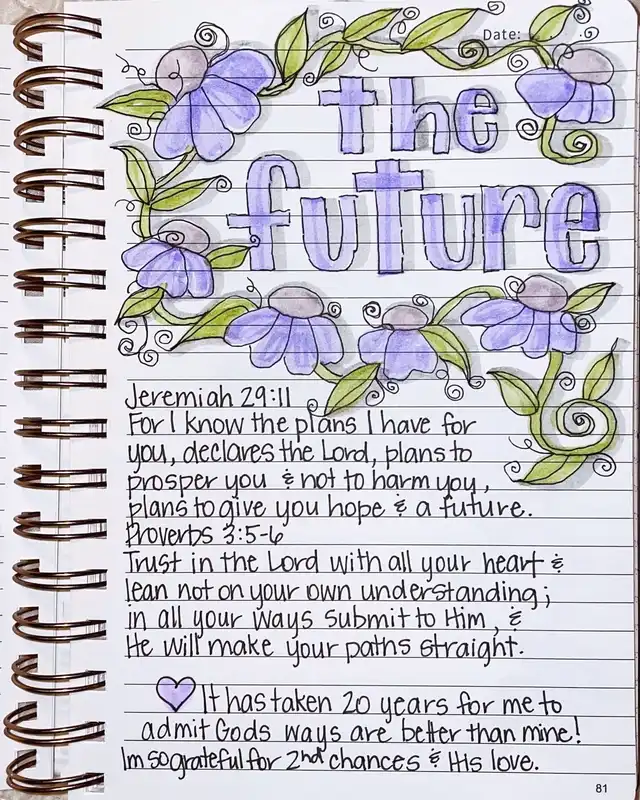 Date:
the
future
Jeremiah 29:11
For I know the plans I have for
you, declares the Lord, plans to
prosper you & not to harm you,
plans to give you hope & a future.
Proverbs 3:5-6
Trust in the Lord with all your heart &
lean not on your own understanding;
in all your ways submit to Him, &
He will make your paths straight.
It has taken 20 years for me to
admit Gods ways are better than mine!
Im so grateful for 2nd chances & His love.
81